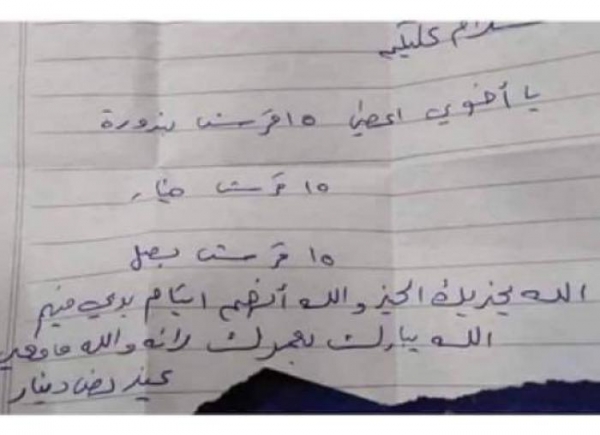 سلام عليكم
يا أخوي اعطي ١٥ قرش بندورة
١٥ قرش خيار
١٥ قرش بصل
الله يجزيك الخير والله أنهم ايتام
الله يبارك بعمرك وانه والله ما معي
غير نص دينار